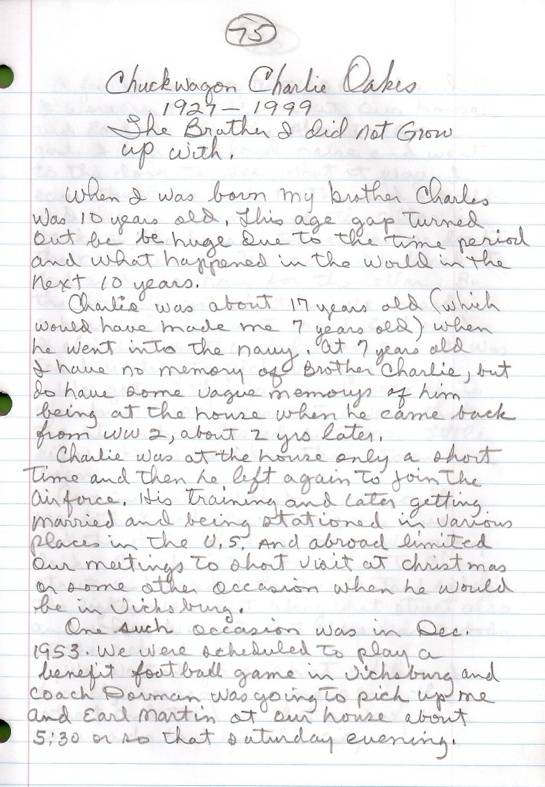 75
Chuckwagon Charlie Oakes
1927-1999
The Brother I did not Grow
up with.
When I was born my brother Charles
was 10 years old. This age gap turned
out be be huge due to the time period
and what happened in the world in the
next 10 years.
Charlie was about 17 years old (which
would have made me 7 years old) when
he went into the navy. At 7 years old
I have no memory of Brother Charlie, but
do have some vague memorys of him
being at the house when he came back
from WW 2, about 2 yrs later.
Charlie was at the house only a short
time and then he left again to join the
airforce. His training and later getting
married and being stationed in various
places in the U.S. and abroad limited
our meetings to short visit at christmas
or some other occasion when he would
be in Vicksburg.
One such occasion was in Dec.
1953. We were scheduled to play a
benefit football game in Vicksburg and
coach Dorman was going to pick up me
and Earl Martin at our house about
5:30 or so that saturday evening.